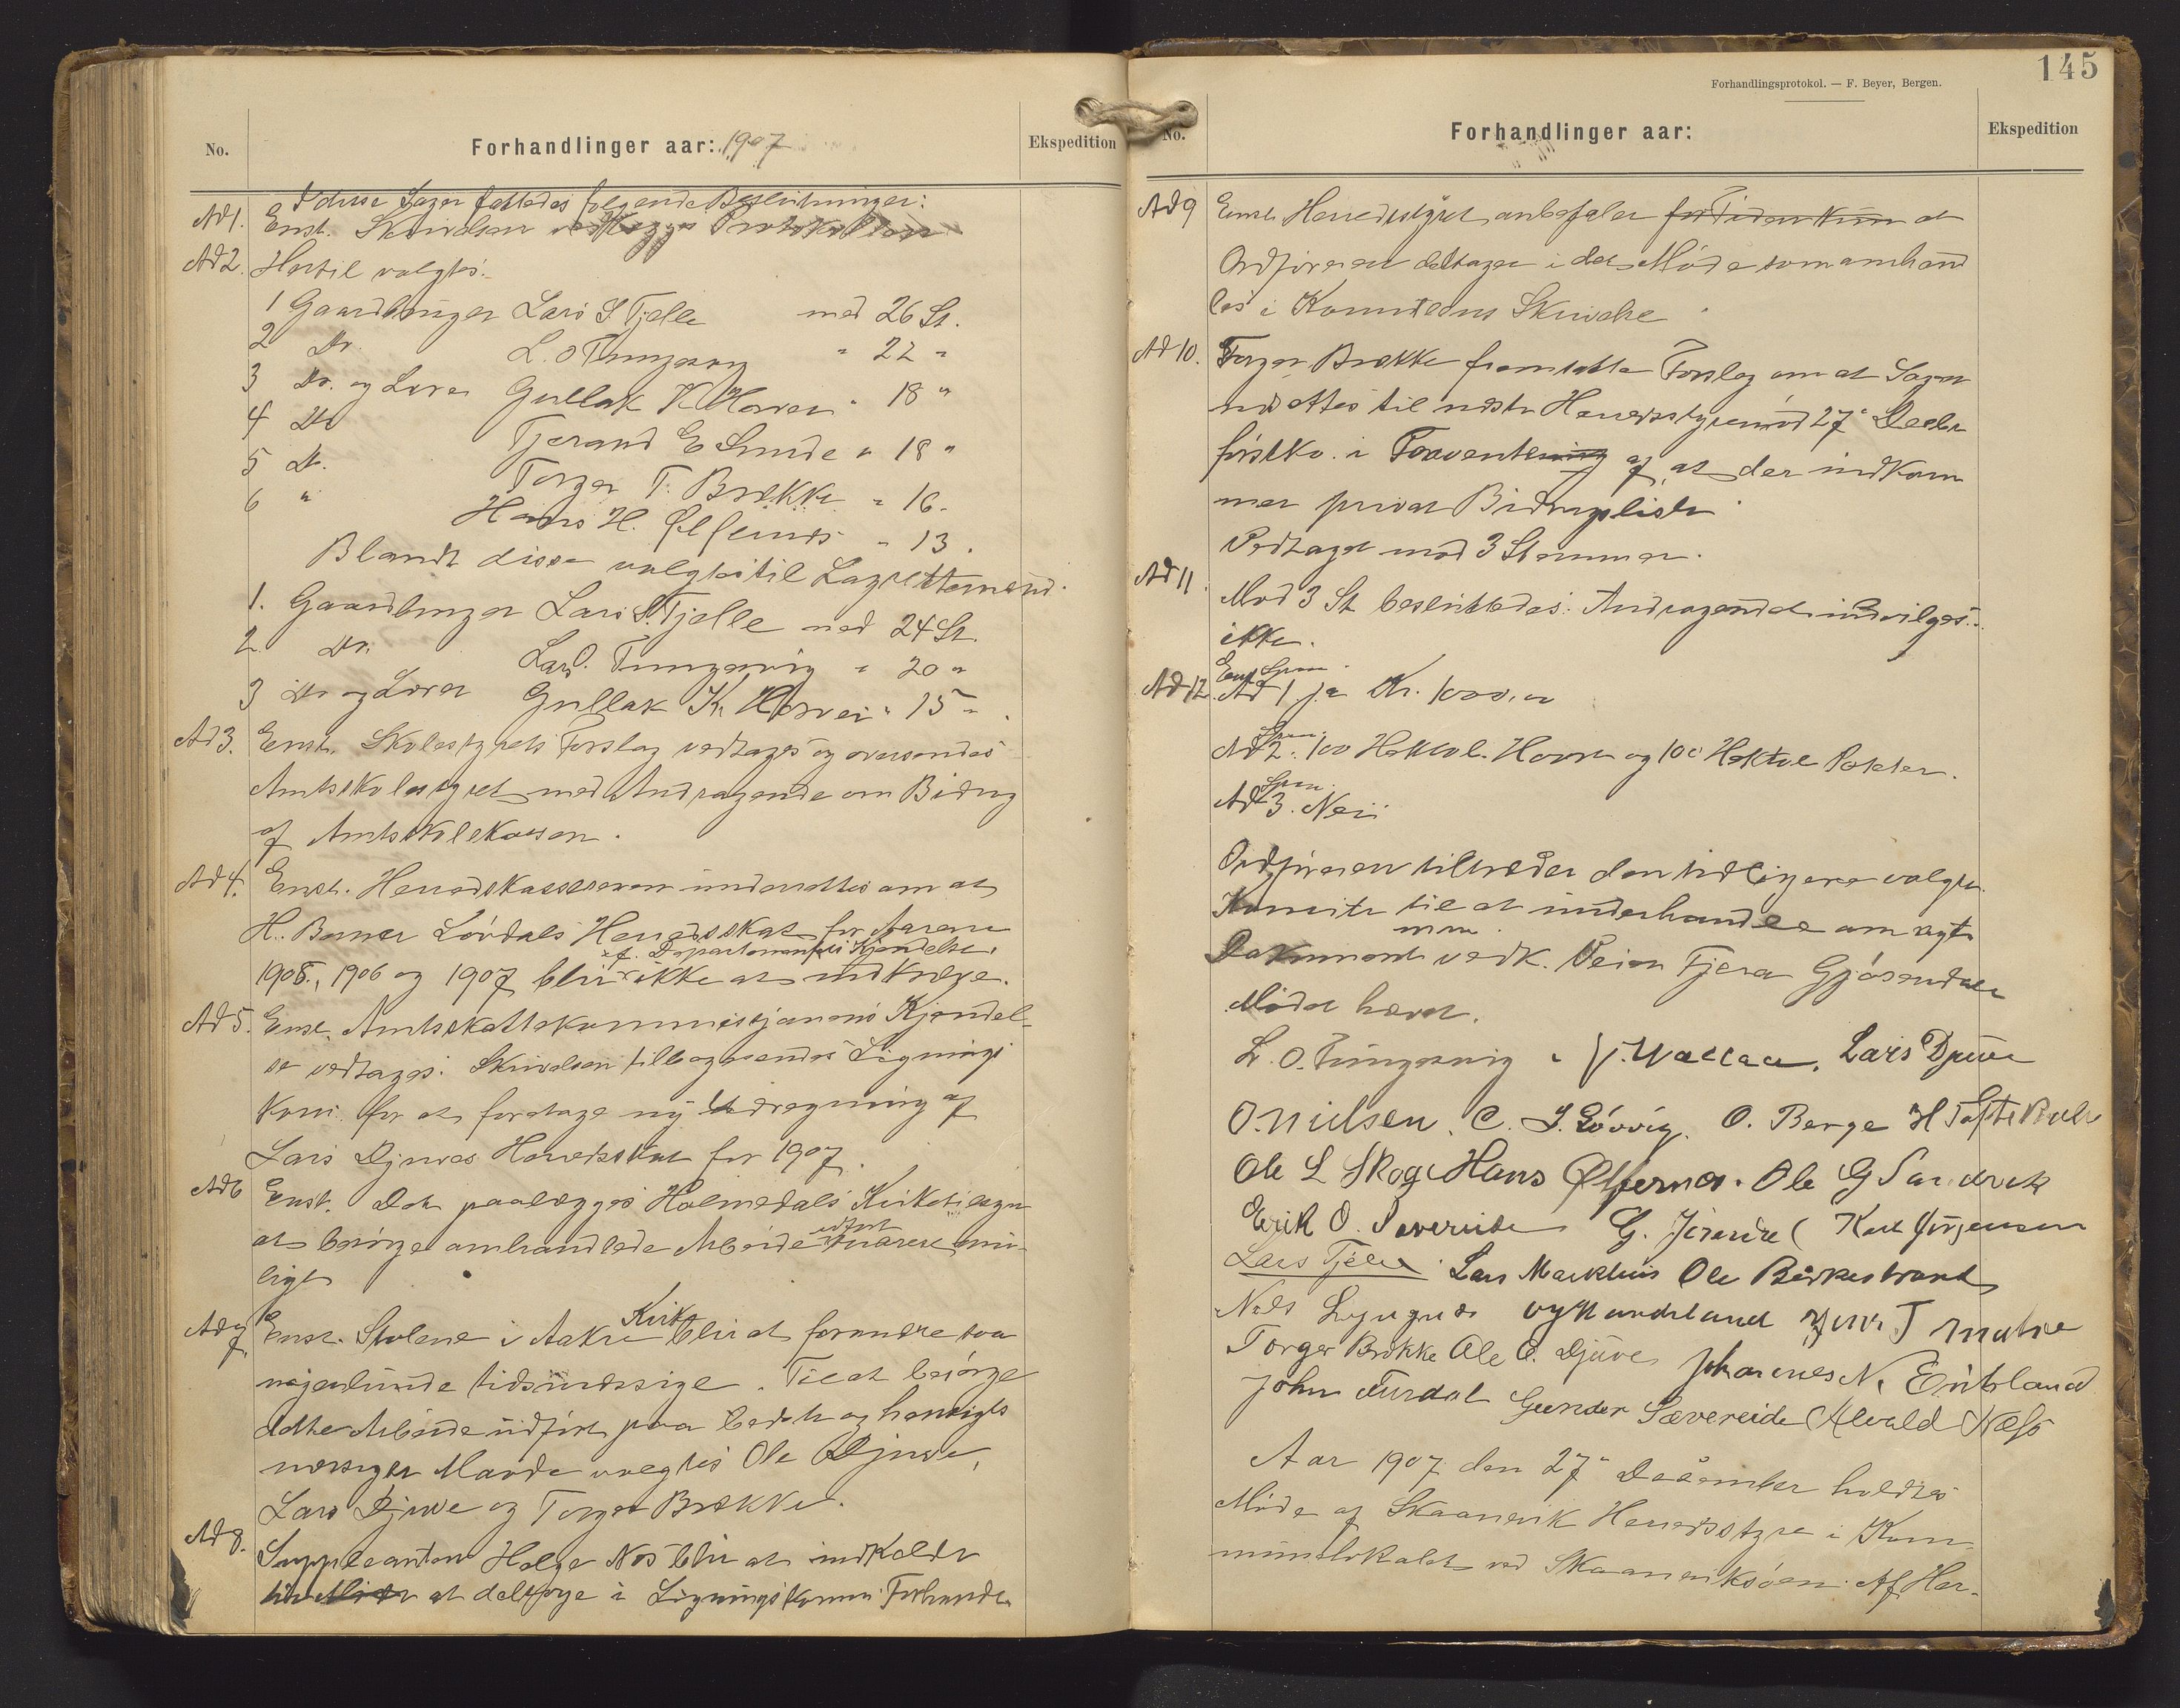 No.
Forhandlinger aar: 1907
Ekspedition
I disse Sager fattedes følgende Beslutninger:
Ad 1. Enst. Skrivelsen vedlægges Protokollen
Ad 2. Hertil valgtes:
1 Gaardbruger Lars S. Tjelle med 26 St.
2 Do. L. O Tungesvig " 22 "
3 Do. og Lærer Gullak K Hervei " 18 "
4 Do Tjerand E Lunde " 18 "
5 Do. Torger T. Brække " 16.
6 " Hans H. Ølfernes " 13.
Blandt disse valgtes til Lagrettemænd.
1. Gaardbruger Lars S. Tjelle med 24 St.
2 Do. Lars O. Tungesvig " 20 "
3 Do og Lærer Gullak K. Hervei " 15 "
Ad 3. Enst. Skolestyrets Forslag vedtages og oversendes
Amtsskolestyret med Andragende om Bidrag
af Amtsskolekassen.
Ad 4. Enst. Herredskassereren underrettes om at
H. Børner Lövdals Herredsskat for Aarene
cf. Departementets Kjendelse
1905, 1906 og 1907 blir ikke at indkræve.
Ad 5. Enst. Amtsskattekommissjonens Kjendel-
se vedtages. Skrivelsen tilbagesendes Lignings
Kom. for at foretage ny Udregning af
Lars Djuves Herredsskat for 1907.
Ad 6 Enst. Det paalægges Holmedals Kirketilsyn
at besørge omhandlede Arbeide udført snarest mu-
ligt
Ad 7. Enst. Stolene i Aakre Kirke blir at forandre saa
nogenlunde tidsmæssige. Til at besörge
dette Arbeide udfört paa bedste og hensigts
mæssigste Maade valgtes Ole Djuve,
Lars Djuve og Torger Brække.
Ad 8. Suppleanten Helge Nes blir at indkalde
til at deltage i Ligningskomm. Forhandl.
Forhandlingsprotokol. — F. Beyer, Bergen.
145
No.
Forhandlinger aar:
Ekspedition
Ad 9 Enst. Herredsstyret anbefaler for Tiden kun at
Ordføreren deltager i det Möde som omhand
les i Komiteens Skrivelse
Ad 10. Torger Brække fremsatte Forslag om at Sagen
udsættes til næste Herredsstyremöd 27de Decbr
förstko. i Forventening af, at der indkom
mer privat Bidragsliste.
Vedtaget mod 3 Stemmer.
Ad 11. Mod 3 St. besluttedes: Andragendet indvilges
ikke.
Ad 12. Enst. Spm. Ad 1 ja Kr. 1000,00
Spm.
Ad 2. 100 Hektol. Havre og 100 Hektol Poteter.
Spm.
Ad 3. Nei
Ordföreren tiltræder den tidligere valgte
Komite til at underhandle om nyt
m m.
Dokument vedk. Veien Fjæra Gjösendal
Mödet hævet.
L. O. Tungesvig J. Wallace. Lars Djuve
O. Nielsen. C. J. Lövvig. O. Berge H Toftekalv
Ole L Skoge Hans Ølfernes. Ole G Sandvik
Erik O. Sævereide G. Karl Jörgensen
Lars Tjelle Lars Markhus Ole Birkestrand
Nils Lyngnes Matre
Torger Brække Ole O. Djuve Johannes N. Eritsland
John Furdal Gunder Sævereide Alvald Næss
Aar 1907 den 27de December holdtes
Möde af Skaanevik Herredsstyre i Kom-
munelokalet ved Skaaneviksöen. Af Her-